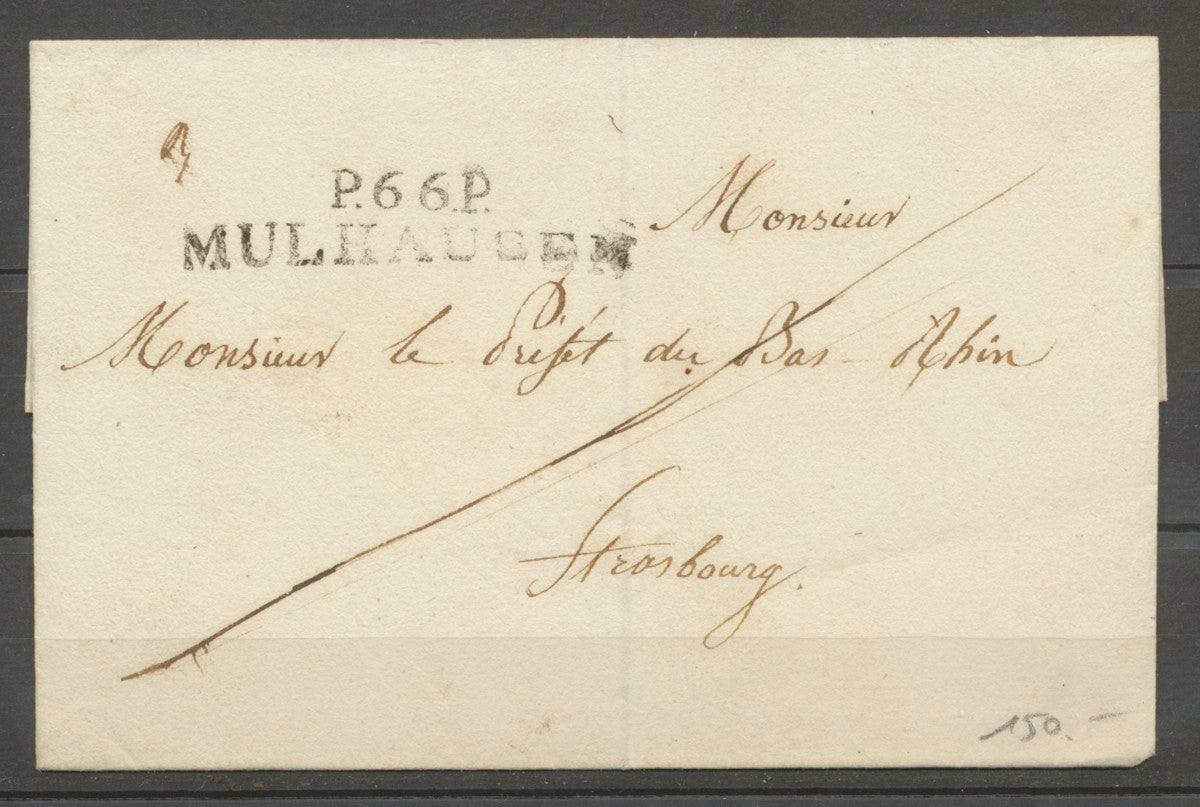 P.66.P.
MULHAUSEN
Monsieur
Monsieur le Préfet du Bas-Rhin
Strasbourg.
150.-